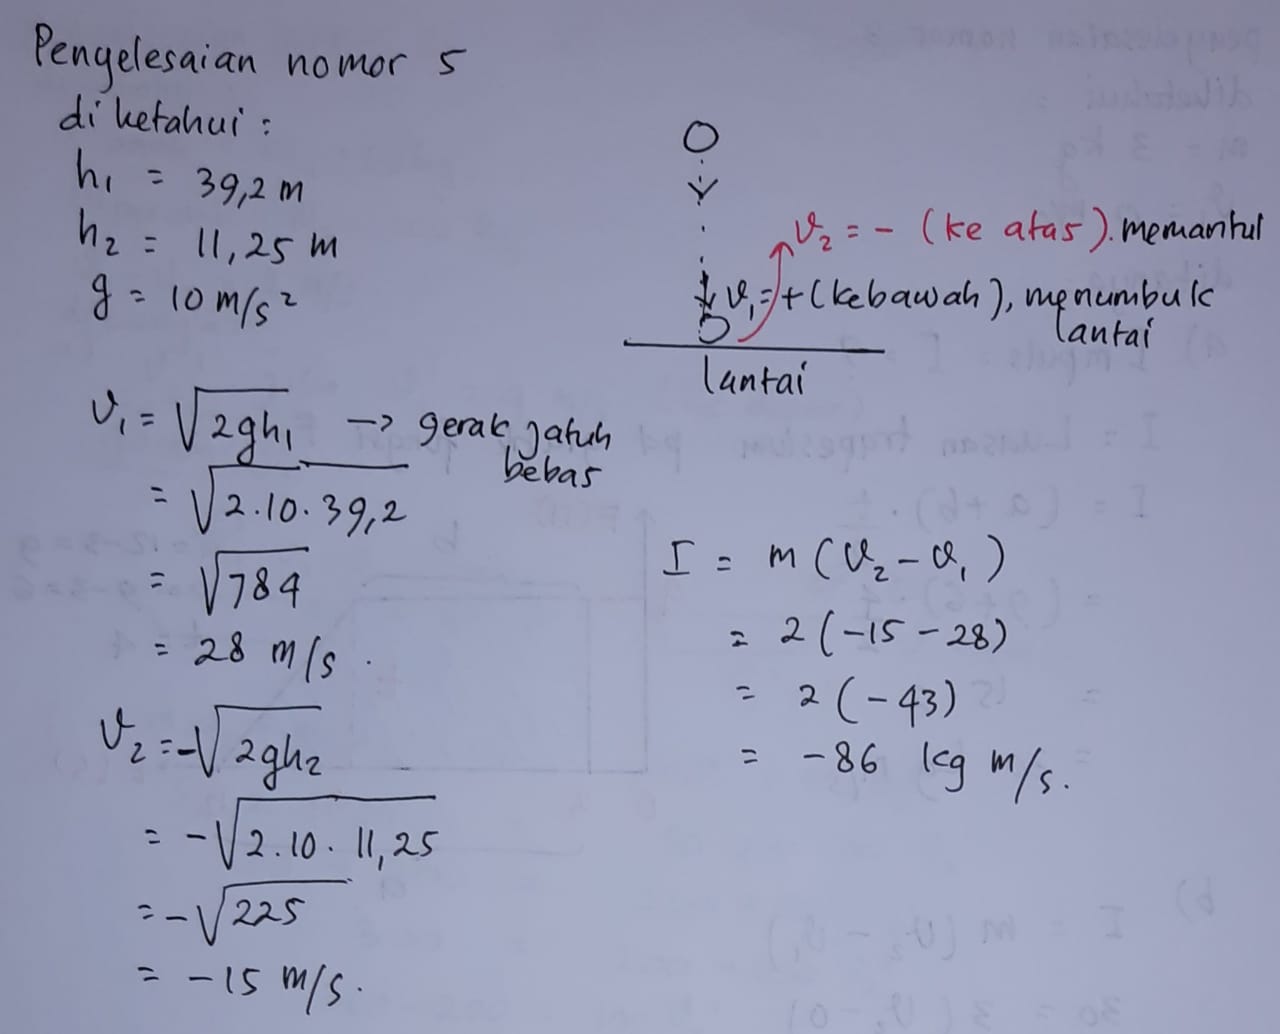 Penyelesaian nomor 5
diketahui :
h₁ = 39,2 m
h₂ = 11,25 m
g = 10 m/s²
v₂ = - (ke atas). memantul
v₁ = + (kebawah), menumbuk
lantai
lantai
v₁ = √2gh₁ → gerak jatuh
bebas
= √2.10.39,2
= √784
= 28 m/s.
v₂ = -√2gh₂
= -√2.10. 11,25
= -√225
= -15 m/s.
I = m (v₂ - v₁)
= 2 (-15 - 28)
= 2 (-43)
= -86 kg m/s.